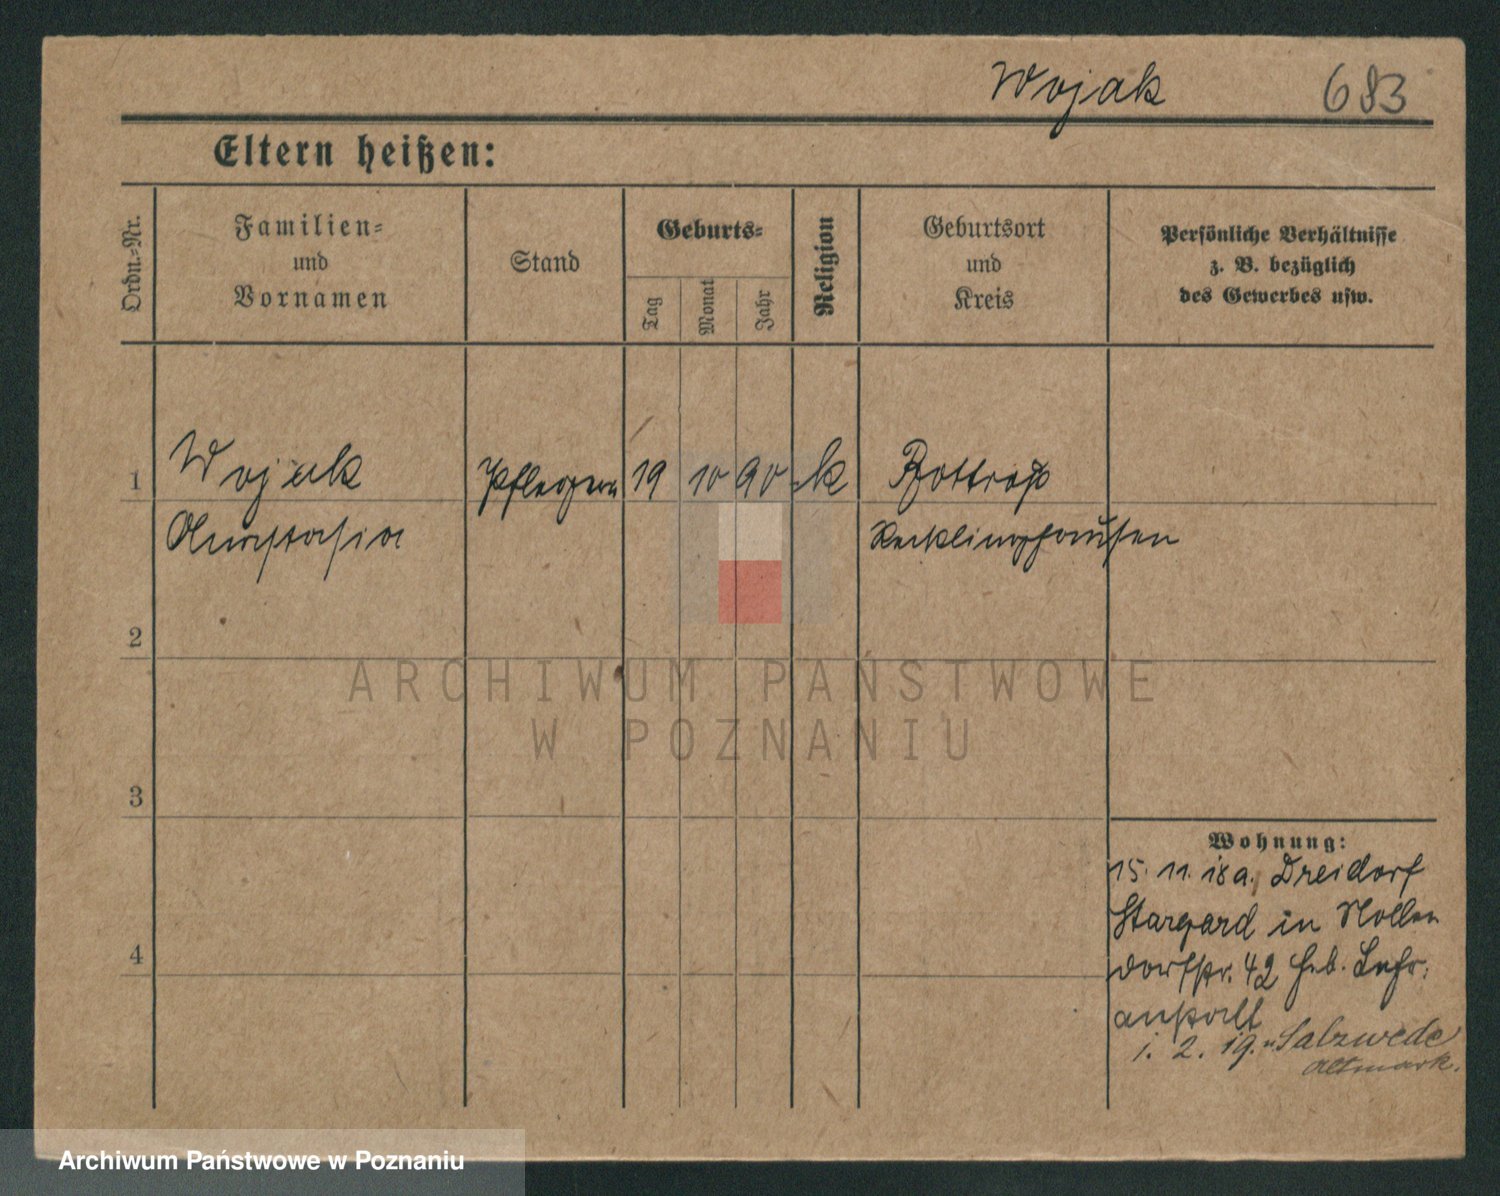 Wojak 683
Eltern heißen:
Ordn.-Nr.
Familien-
und
Vornamen
Stand
Geburts-
Tag
Monat
Jahr
Religion
Geburtsort
und
Kreis
Persönliche Verhältnisse
z. B. bezüglich
des Gewerbes usw.
1 Wojak Pflegerin 19 10 90 k Bottrop
Anastasia Recklinghausen
2
3
4
Wohnung:
15. 11. 18 a. Dreidorf
Stargard in Nollen
dorfstr. 42 Heb. Lehr.
anstalt
1. 2. 19. n. Salzwede
Altmark.
ARCHIWUM PAŃSTWOWE
W POZNANIU
Archiwum Państwowe w Poznaniu